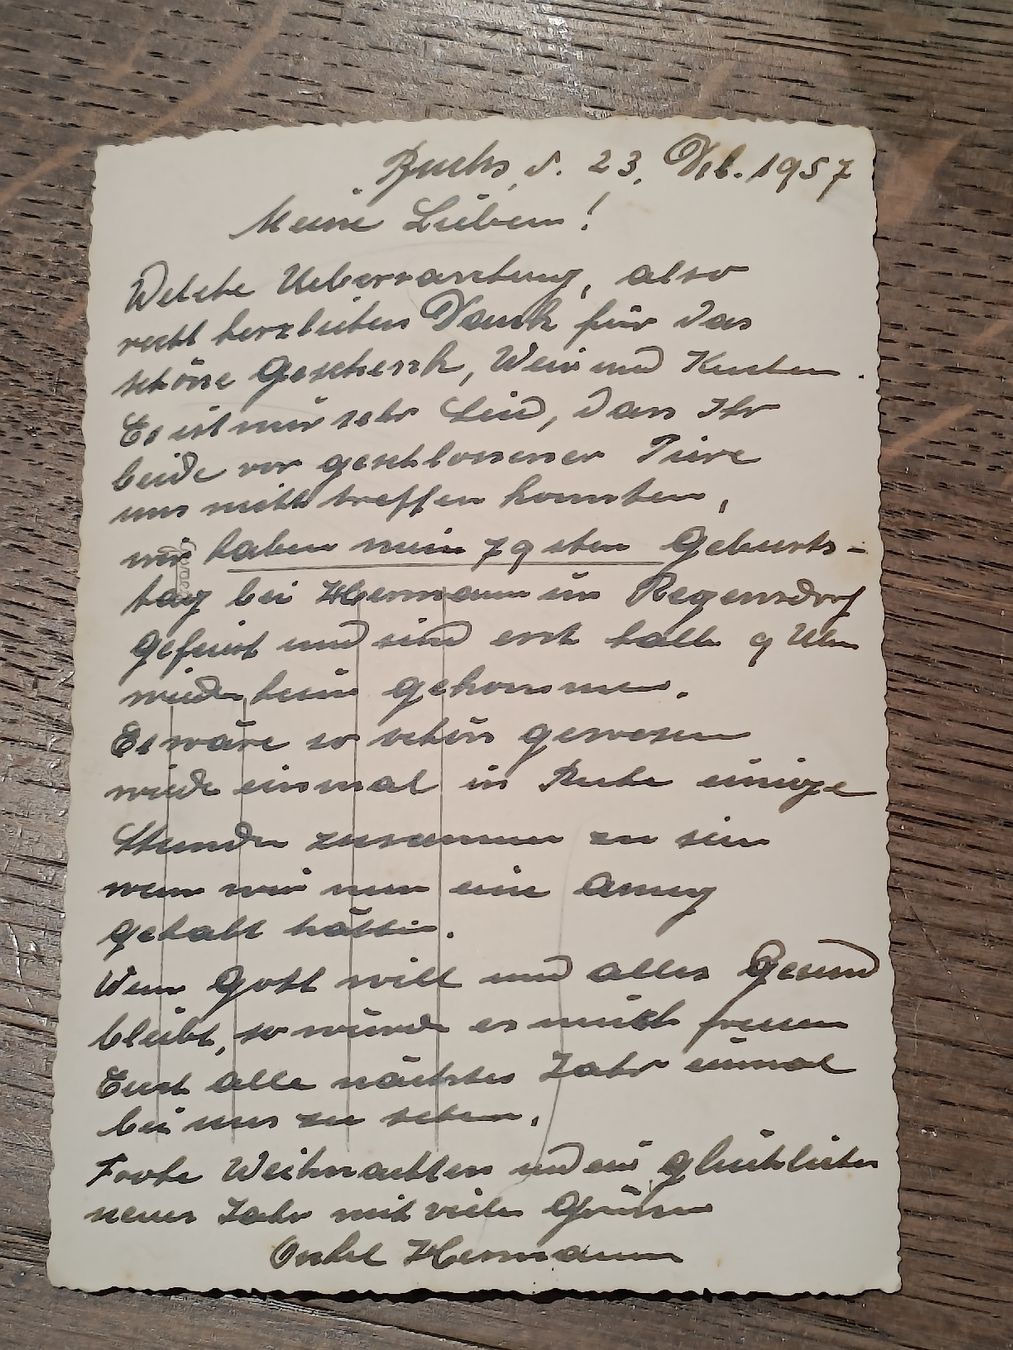 Buchs, d. 23. Dez. 1957
Meine Lieben!
Welche Ueberraschung, also
recht herzlichen Dank für das
schöne Geschenk, Wein und Kuchen.
Es ist mir sehr Leid, dass Ihr
beide vor geschlossener Türe
uns nicht treffen konnten,
wir haben mein 79sten Geburts-
tag bei Hermann in Regensdorf
gefeiert und sind erst halb 9 Uhr
wieder heim gekommen.
Es wäre so schön gewesen
wieder einmal in Ruhe einige
Stunden zusammen zu sein
wenn wir nur eine Ahnung
gehabt hätten.
Wenn Gott will und alles Gesund
bleibt, so würde es mich freuen
Euch alle nächstes Jahr einmal
bei uns zu sehen.
Frohe Weihnachten und ein glückliches
neues Jahr mit vielen Grüssen
Onkel Hermann